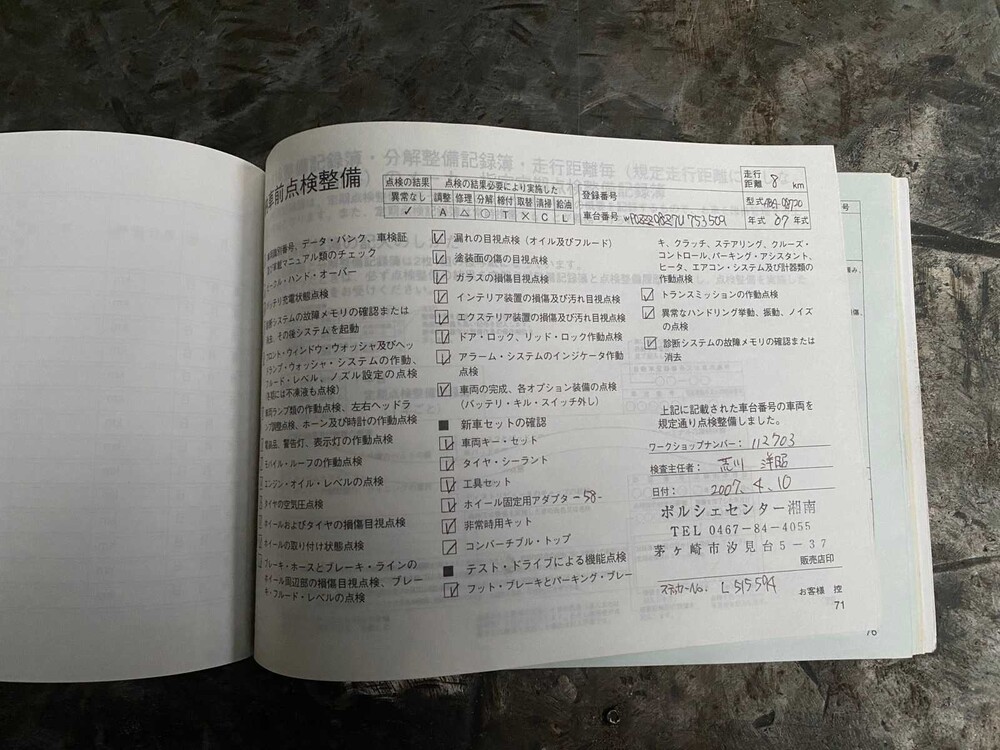 前点検整備
点検の結果 点検の結果必要により実施した
異常なし 調整 修理 分解 締付 取替 清掃 給油
✓ A △ ○ T × C L
登録番号
車台番号
走行距離 8 km
型式
年式 07 年式
識別番号、データ・バンク、車検証
マニュアル類のチェック
ハンド・オーバー
充電状態点検
システムの故障メモリの確認または
その後システムを起動
フロント・ウィンドウ・ウォッシャ及びヘッ
ドランプ・ウォッシャ・システムの作動、
フルード・レベル、ノズル設定の点検
には不凍液も点検)
ランプ類の作動点検、左右ヘッドラ
ンプ調整点検、ホーン及び時計の作動点検
警告灯、表示灯の作動点検
モバイル・ルーフの作動点検
エンジン・オイル・レベルの点検
タイヤの空気圧点検
ホイールおよびタイヤの損傷目視点検
ホイールの取り付け状態点検
ブレーキ・ホースとブレーキ・ラインの
ホイール周辺部の損傷目視点検、ブレー
キ・フルード・レベルの点検
漏れの目視点検(オイル及びフルード)
塗装面の傷の目視点検
ガラスの損傷目視点検
インテリア装置の損傷及び汚れ目視点検
エクステリア装置の損傷及び汚れ目視点検
ドア・ロック、リッド・ロック作動点検
アラーム・システムのインジケータ作動
点検
車両の完成、各オプション装備の点検
(バッテリ・キル・スイッチ外し)
■ 新車セットの確認
車両キー・セット
タイヤ・シーラント
工具セット
ホイール固定用アダプター -58-
非常時用キット
コンバーチブル・トップ
■ テスト・ドライブによる機能点検
フット・ブレーキとパーキング・ブレー
キ、クラッチ、ステアリング、クルーズ・
コントロール、パーキング・アシスタント、
ヒータ、エアコン・システム及び計器類の
作動点検
トランスミッションの作動点検
異常なハンドリング挙動、振動、ノイズ
の点検
診断システムの故障メモリの確認または
消去
上記に記載された車台番号の車両を
規定通り点検整備しました。
ワークショップナンバー: 112703
検査主任者: 荒川 洋昭
日付: 2007. 4. 10
ポルシェセンター湘南
TEL 0467-84-4055
茅ヶ崎市汐見台5-37
販売店印
ステッカーNo. L 515594
お客様 控
71
76